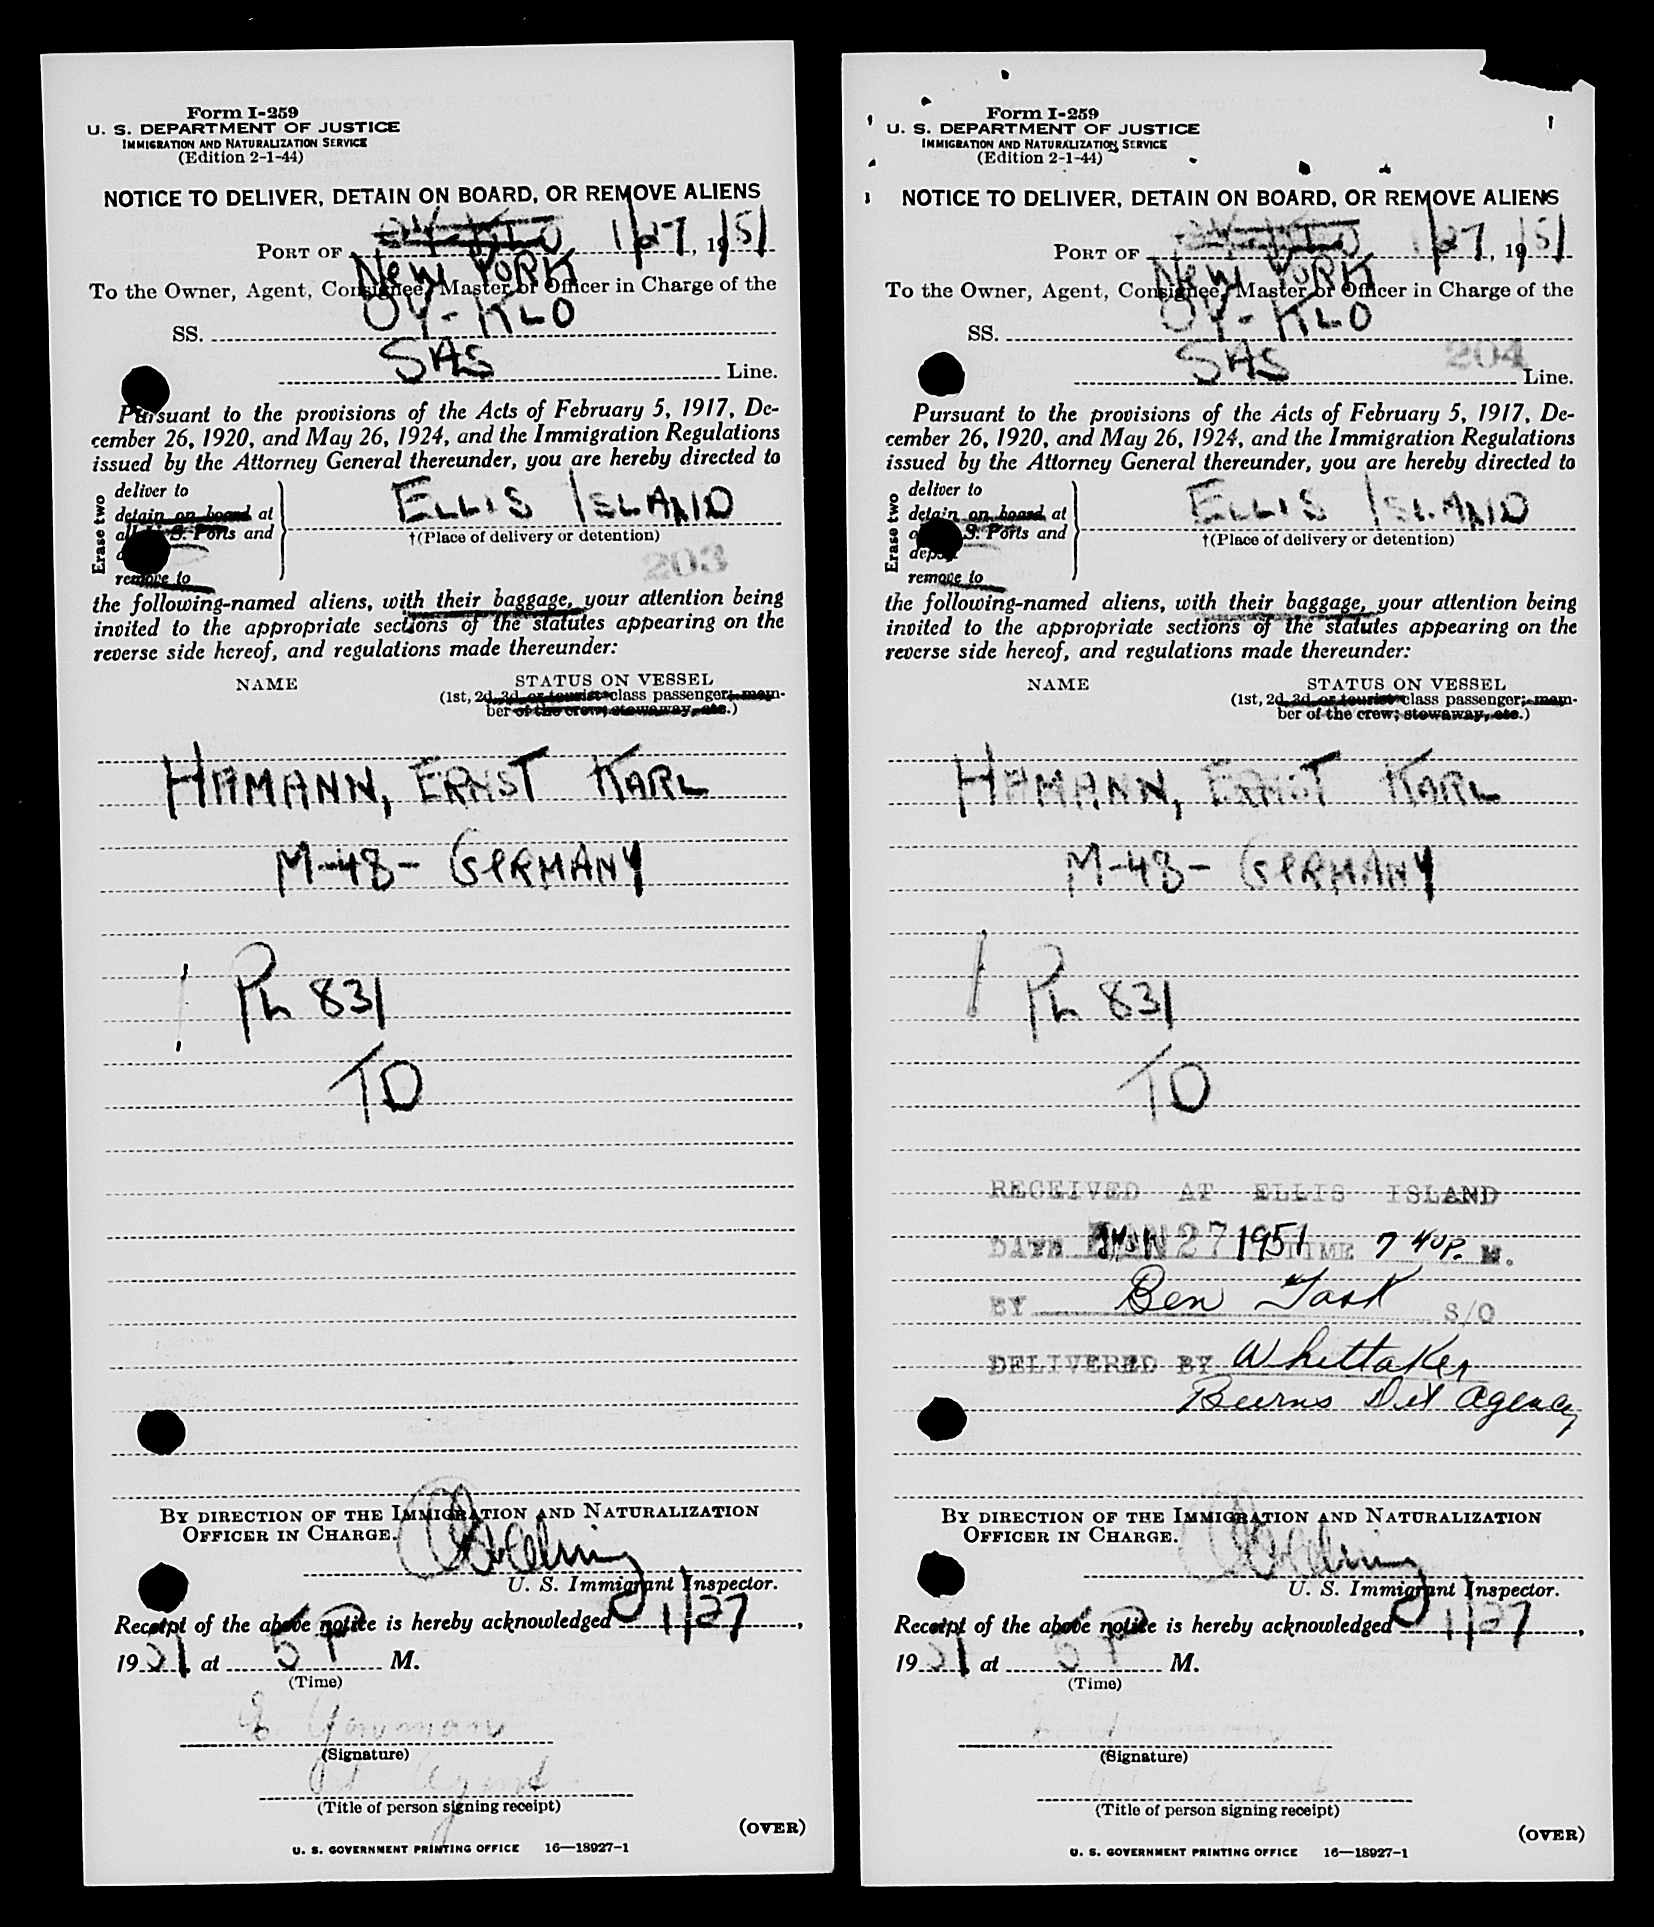 Form I-259
U. S. DEPARTMENT OF JUSTICE
IMMIGRATION AND NATURALIZATION SERVICE
(Edition 2-1-44)
NOTICE TO DELIVER, DETAIN ON BOARD, OR REMOVE ALIENS
PORT OF OY-KLO 1/27, 1951
NEW YORK
To the Owner, Agent, Consignee, Master or Officer in Charge of the
SS. OY-KLO
SAS Line.
Pursuant to the provisions of the Acts of February 5, 1917, De-
cember 26, 1920, and May 26, 1924, and the Immigration Regulations
issued by the Attorney General thereunder, you are hereby directed to
Erase two
deliver to
detain on board at
S. Ports and
remove to
ELLIS ISLAND
†(Place of delivery or detention)
203
the following-named aliens, with their baggage, your attention being
invited to the appropriate sections of the statutes appearing on the
reverse side hereof, and regulations made thereunder:
NAME STATUS ON VESSEL
(1st, 2d, 3d, or tourist class passenger; mem-
ber of the crew; stowaway, etc.)
HAMANN, ERNST KARL
M-48- GERMANY
Ph 831
TO
BY DIRECTION OF THE IMMIGRATION AND NATURALIZATION
OFFICER IN CHARGE.
U. S. Immigrant Inspector.
Receipt of the above notice is hereby acknowledged 1/27,
1951, at 5 P M.
(Time)
(Signature)
Agent
(Title of person signing receipt)
(OVER)
U. S. GOVERNMENT PRINTING OFFICE 16—18927-1
Form I-259
U. S. DEPARTMENT OF JUSTICE
IMMIGRATION AND NATURALIZATION SERVICE
(Edition 2-1-44)
NOTICE TO DELIVER, DETAIN ON BOARD, OR REMOVE ALIENS
PORT OF OY-KLO 1/27, 1951
NEW YORK
To the Owner, Agent, Consignee, Master or Officer in Charge of the
SS. OY-KLO
204
SAS Line.
Pursuant to the provisions of the Acts of February 5, 1917, De-
cember 26, 1920, and May 26, 1924, and the Immigration Regulations
issued by the Attorney General thereunder, you are hereby directed to
Erase two
deliver to
detain on board at
S. Ports and
remove to
ELLIS ISLAND
†(Place of delivery or detention)
the following-named aliens, with their baggage, your attention being
invited to the appropriate sections of the statutes appearing on the
reverse side hereof, and regulations made thereunder:
NAME STATUS ON VESSEL
(1st, 2d, 3d, or tourist class passenger; mem-
ber of the crew; stowaway, etc.)
HAMANN, ERNST KARL
M-48- GERMANY
Ph 831
TO
RECEIVED AT ELLIS ISLAND
DATE JAN 27 1951 TIME 7 40 P. M.
BY Ben Task S/O
DELIVERED BY Whittaker
Burns Det Agency
BY DIRECTION OF THE IMMIGRATION AND NATURALIZATION
OFFICER IN CHARGE.
U. S. Immigrant Inspector.
Receipt of the above notice is hereby acknowledged 1/27,
1951, at 5 P M.
(Time)
(Signature)
(Title of person signing receipt)
(OVER)
U. S. GOVERNMENT PRINTING OFFICE 16—18927-1